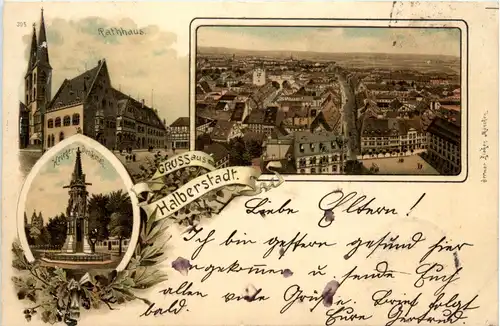 205
Rathhaus
Krieger-Denkmal
GRUSS aus
Halberstadt.
Liebe Eltern!
Ich bin gestern gesund hier
angekommen u. sende Euch
allen viele Grüße. Brief folgt
bald. Eure Gertrud.